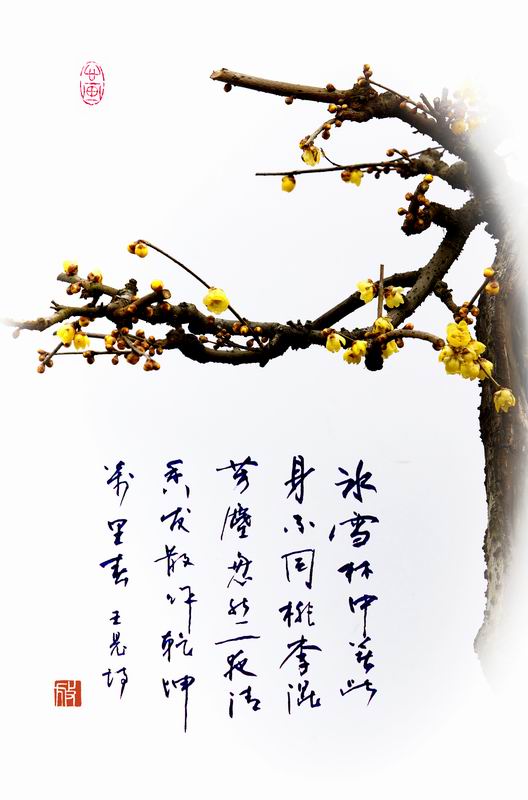 冰雪林中著此
身不同桃李混
芳塵忽然一夜清
香发散作乾坤
萬里春 王冕诗